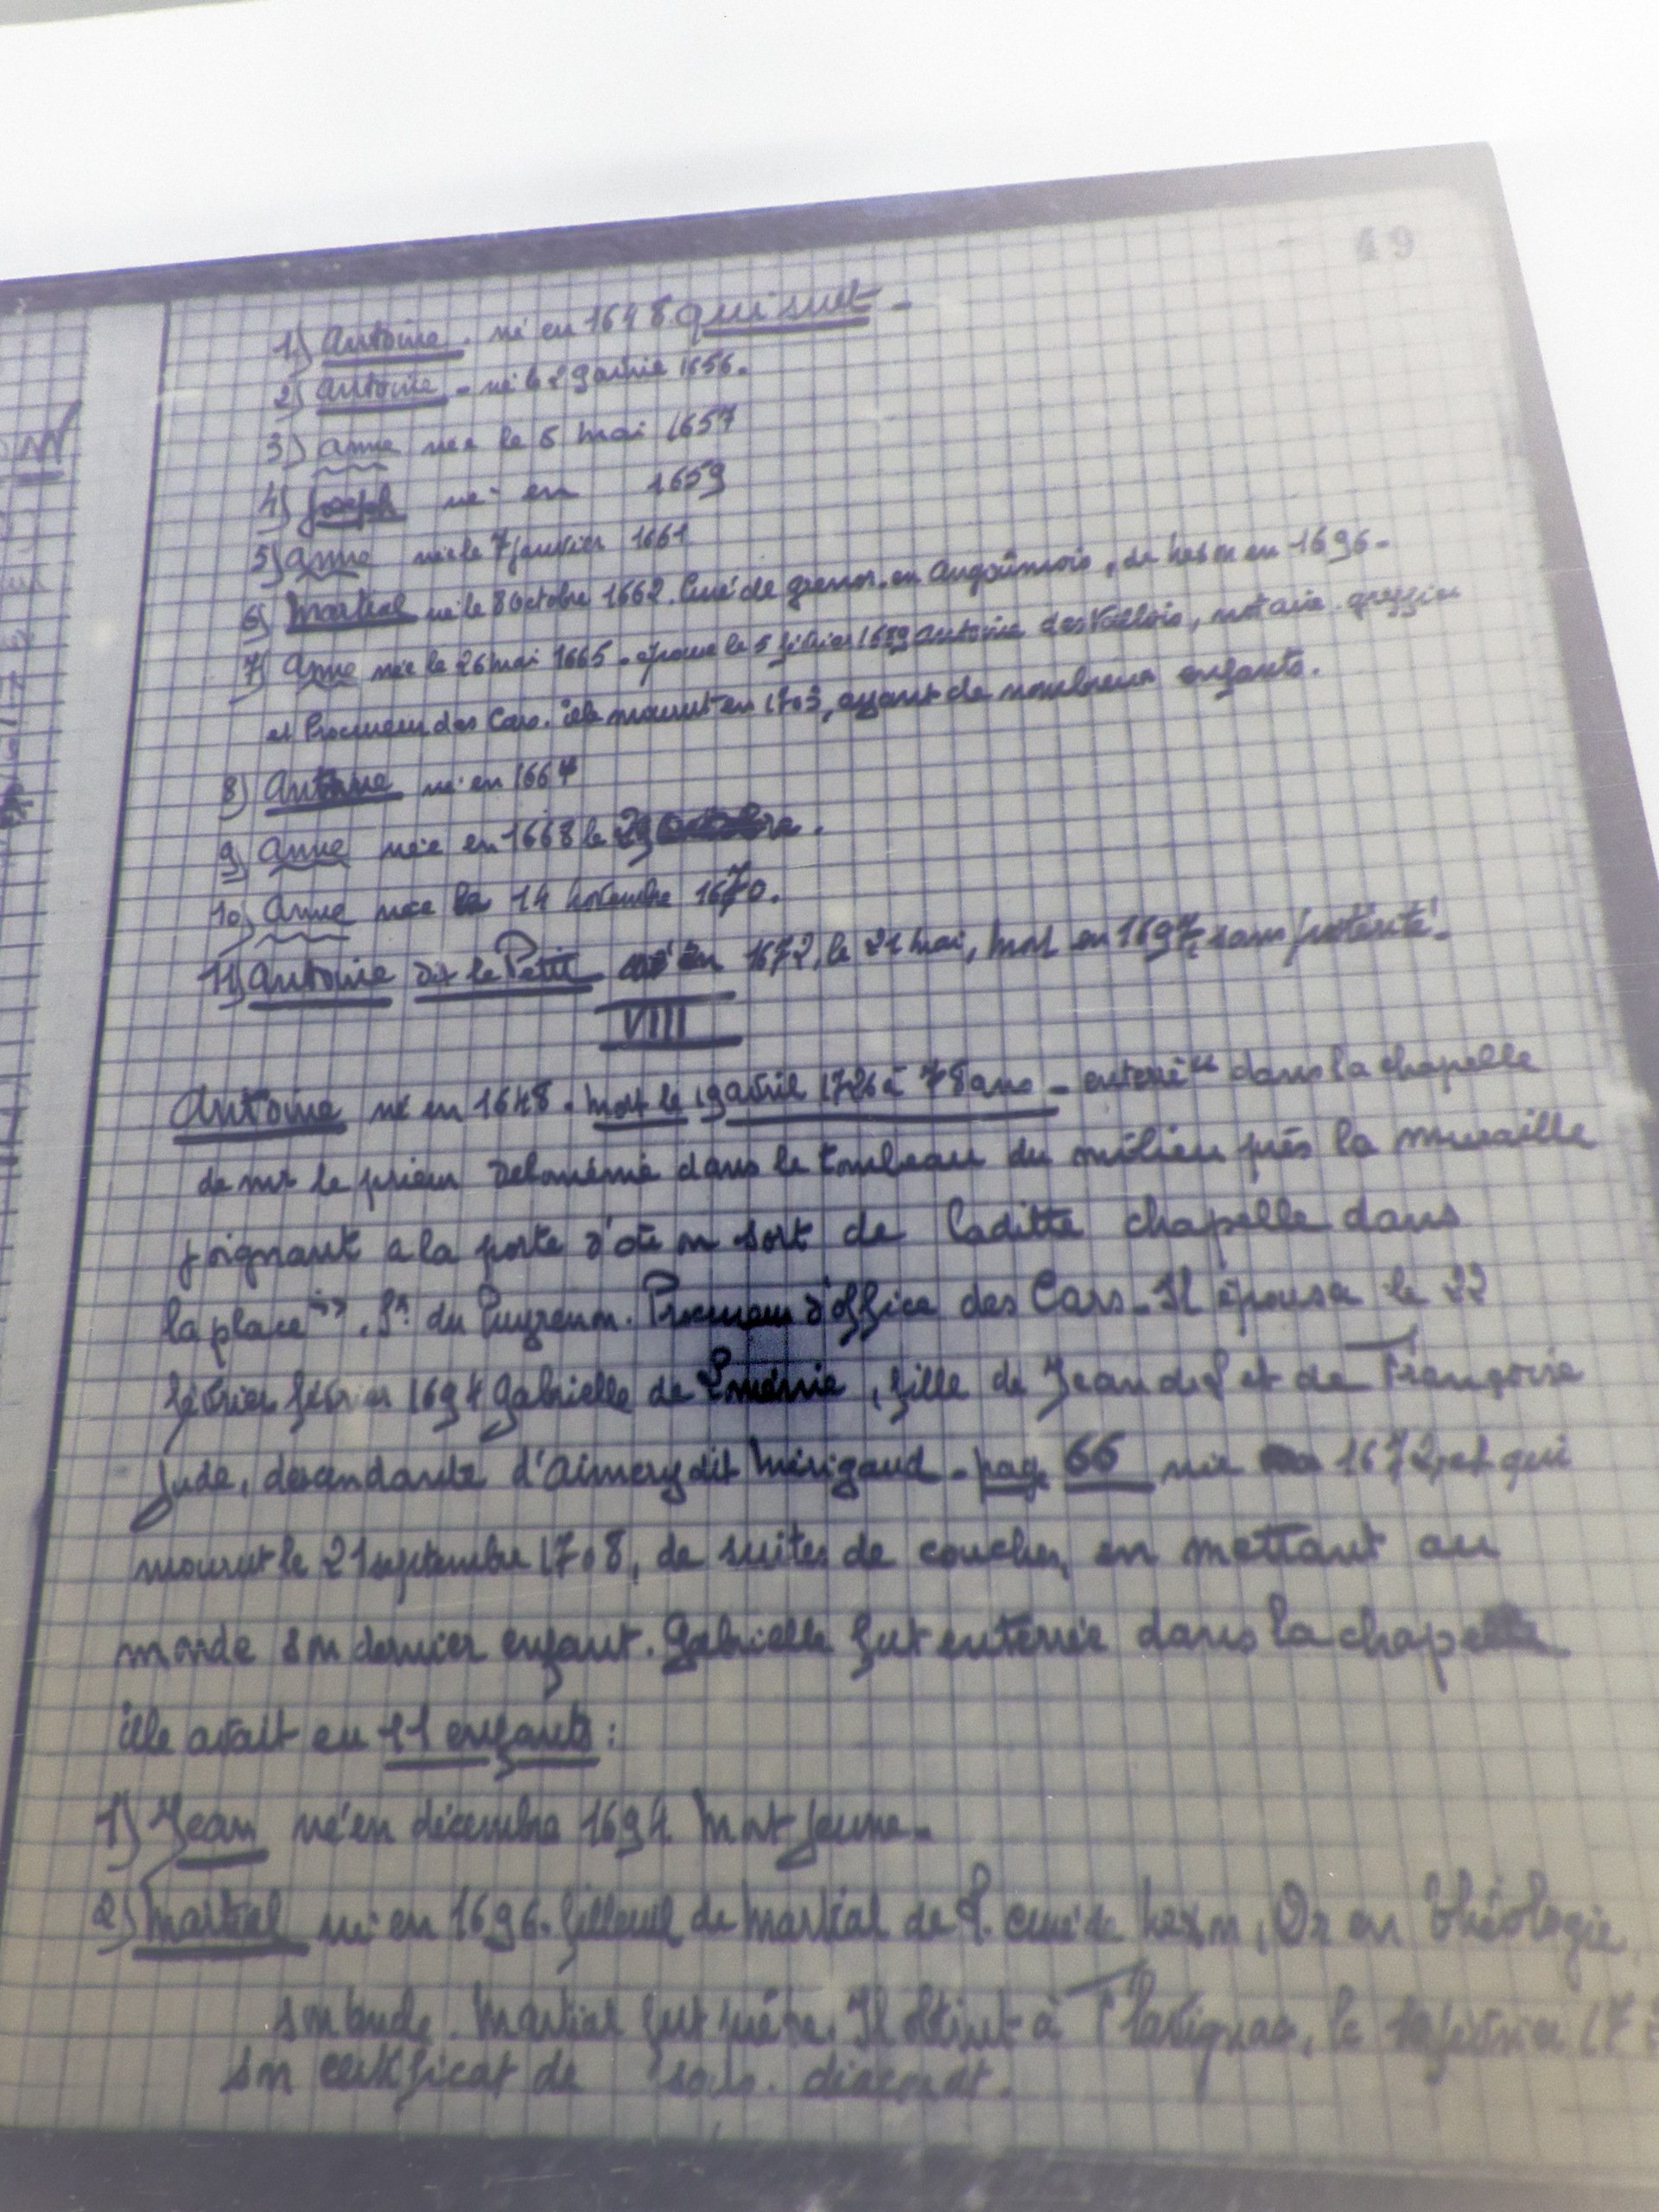 49
1) Antoine . né en 1648 qui suit -
2) Antoine - né le 29 1656.
3) Anne née le 5 mai 1657
4) Joseph né en 1659
5) Anne née le 7 janvier 1661
6) Martial né le 8 Octobre 1662. Curé de en Angoûmois, de en 1696-
7) Anne née le 26 mai 1665. épouse le 5 février 1689 Antoine des Vallois, notaire. greffier
et Procureur des Cars. elle mourut en 1703, ayant de nombreux enfants.
8) Antoine né en 1667
9) Anne née en 1668 le 29 Octobre.
10) Anne née le 14 novembre 1670.
11) Antoine dit le Petit né en 1672, le 21 mai, mort en 1697, sans postérité.
VIII
Antoine né en 1648. mort le 19 avril 1726 à 78 ans - enterré "dans la chapelle
de mr le prieur Deloménie dans le tombeau du milieu près la muraille
joignant a la porte d'où on sort de laditte chapelle dans
la place". Sr. du Puyrenon. Procureur d'office des Cars. Il épousa le 22
février février 1694 Gabrielle de Loménie, fille de Jean de L et de Françoise
Jude, descendante d'Aimery dit Mérigaud - page 66 née 1672, et qui
mourut le 21 septembre 1708, de suites de couches, en mettant au
monde son dernier enfant. Gabrielle fut enterrée dans la chapelle
elle avait eu 11 enfants :
1) Jean né en décembre 1694. Mort jeune.
2) Martial né en 1696. filleul de Martial de L. curé de , Dr en théologie,
son oncle. Martial fut prêtre. Il obtint à Flavignac, le février 17
son certificat de sous. diaconat.